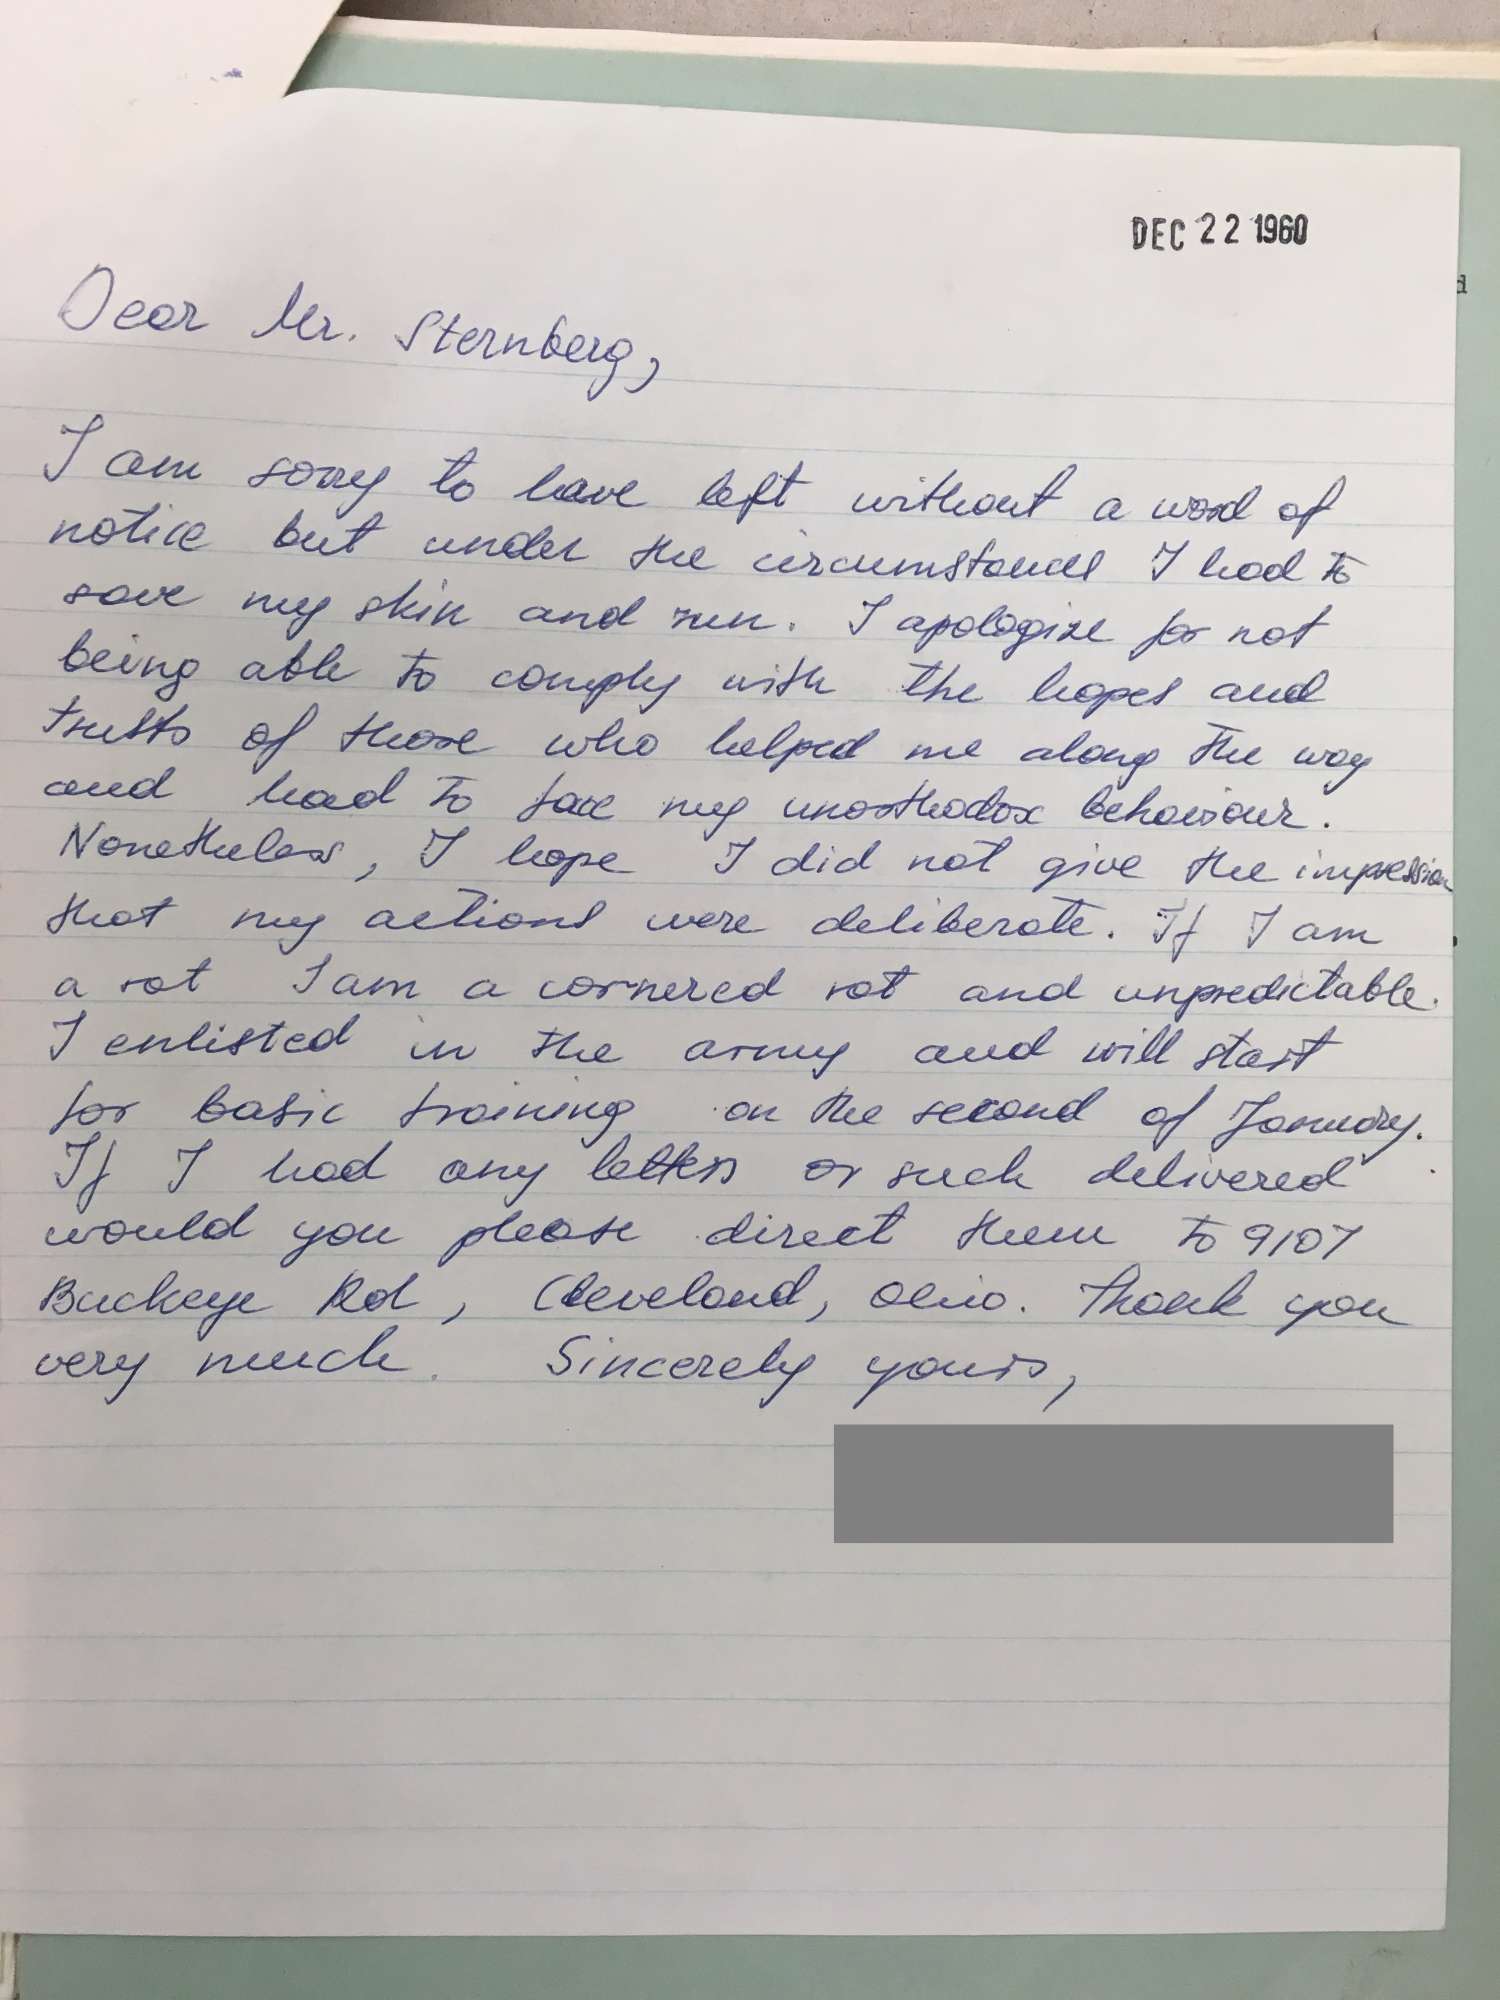 DEC 22 1960
d
Dear Mr. Sternberg,
I am sorry to have left without a word of
notice but under the circumstances I had to
save my skin and run. I apologize for not
being able to comply with the hopes and
trusts of those who helped me along the way
and had to face my unorthodox behaviour.
Nonetheless, I hope I did not give the impression
that my actions were deliberate. If I am
a rat I am a cornered rat and unpredictable.
I enlisted in the army and will start
for basic training on the second of January.
If I had any letters or such delivered
would you please direct them to 9107
Buckeye Rd, Cleveland, Ohio. Thank you
very much. Sincerely yours,